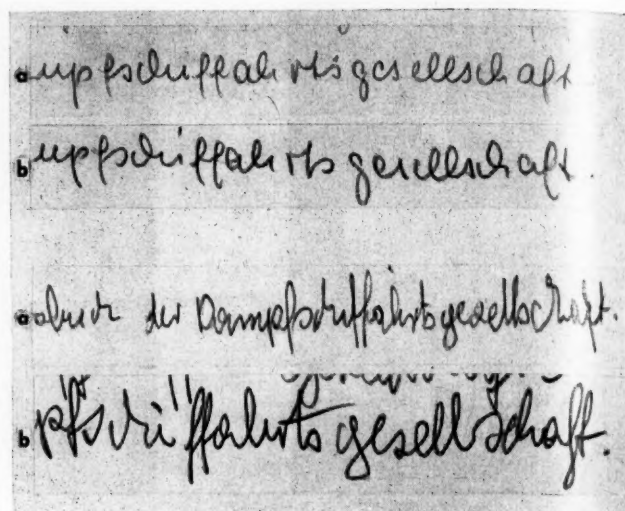 a mpfschiffahrtsgesellschaft
b mpfschiffahrtsgesellschaft.
a der Dampfschiffahrtsgesellschaft.
b pfschiffahrtsgesellschaft.